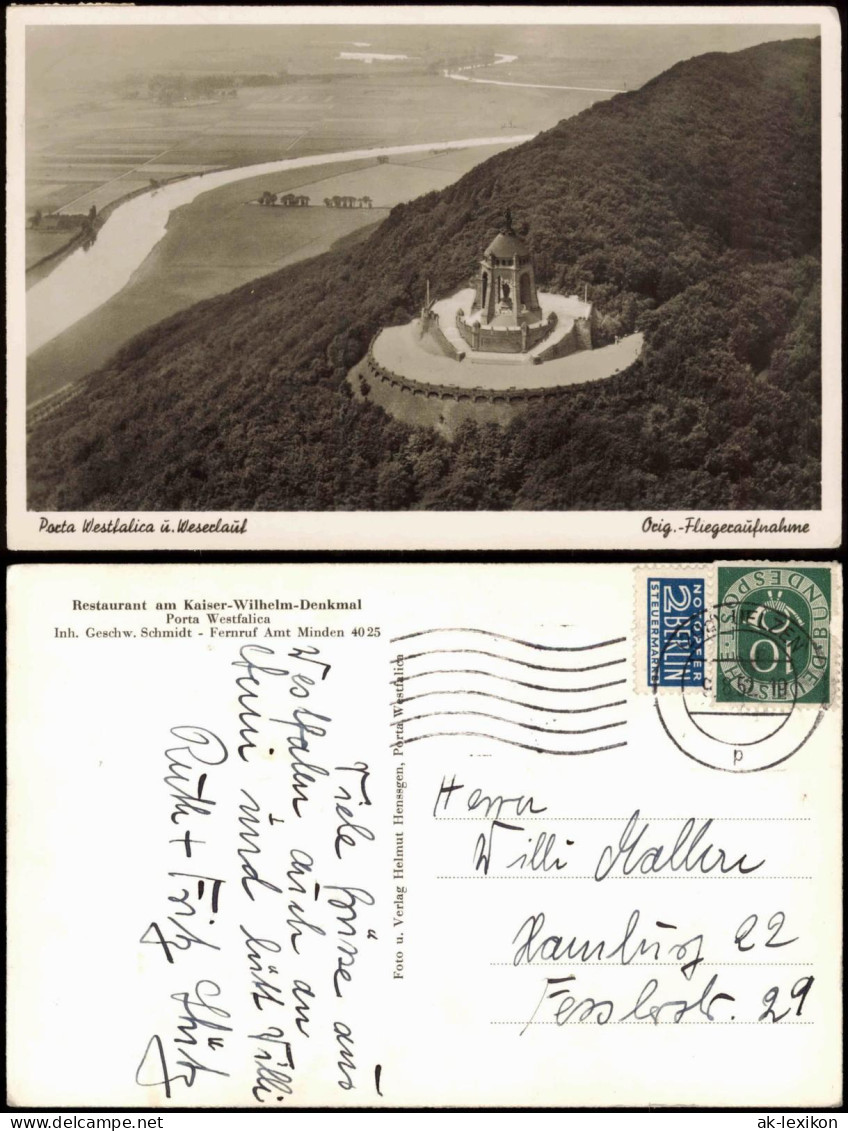 Porta Westfalica u. Weserlauf
Orig.-Fliegeraufnahme
Restaurant am Kaiser-Wilhelm-Denkmal
Porta Westfalica
Inh. Geschw. Schmidt - Fernruf Amt Minden 40 25
Viele Grüsse aus
Westfalen auch an
und lütt Villi
Ruth + Fritz
Foto u. Verlag Helmut Henssgen, Porta Westfalica
NOTOPFER
2 BERLIN
STEUERMARKE
DEUTSCHE BUNDESPOST
10
UELZEN
p
Herrn
Willi
Hamburg 22
29
ak-lexikon